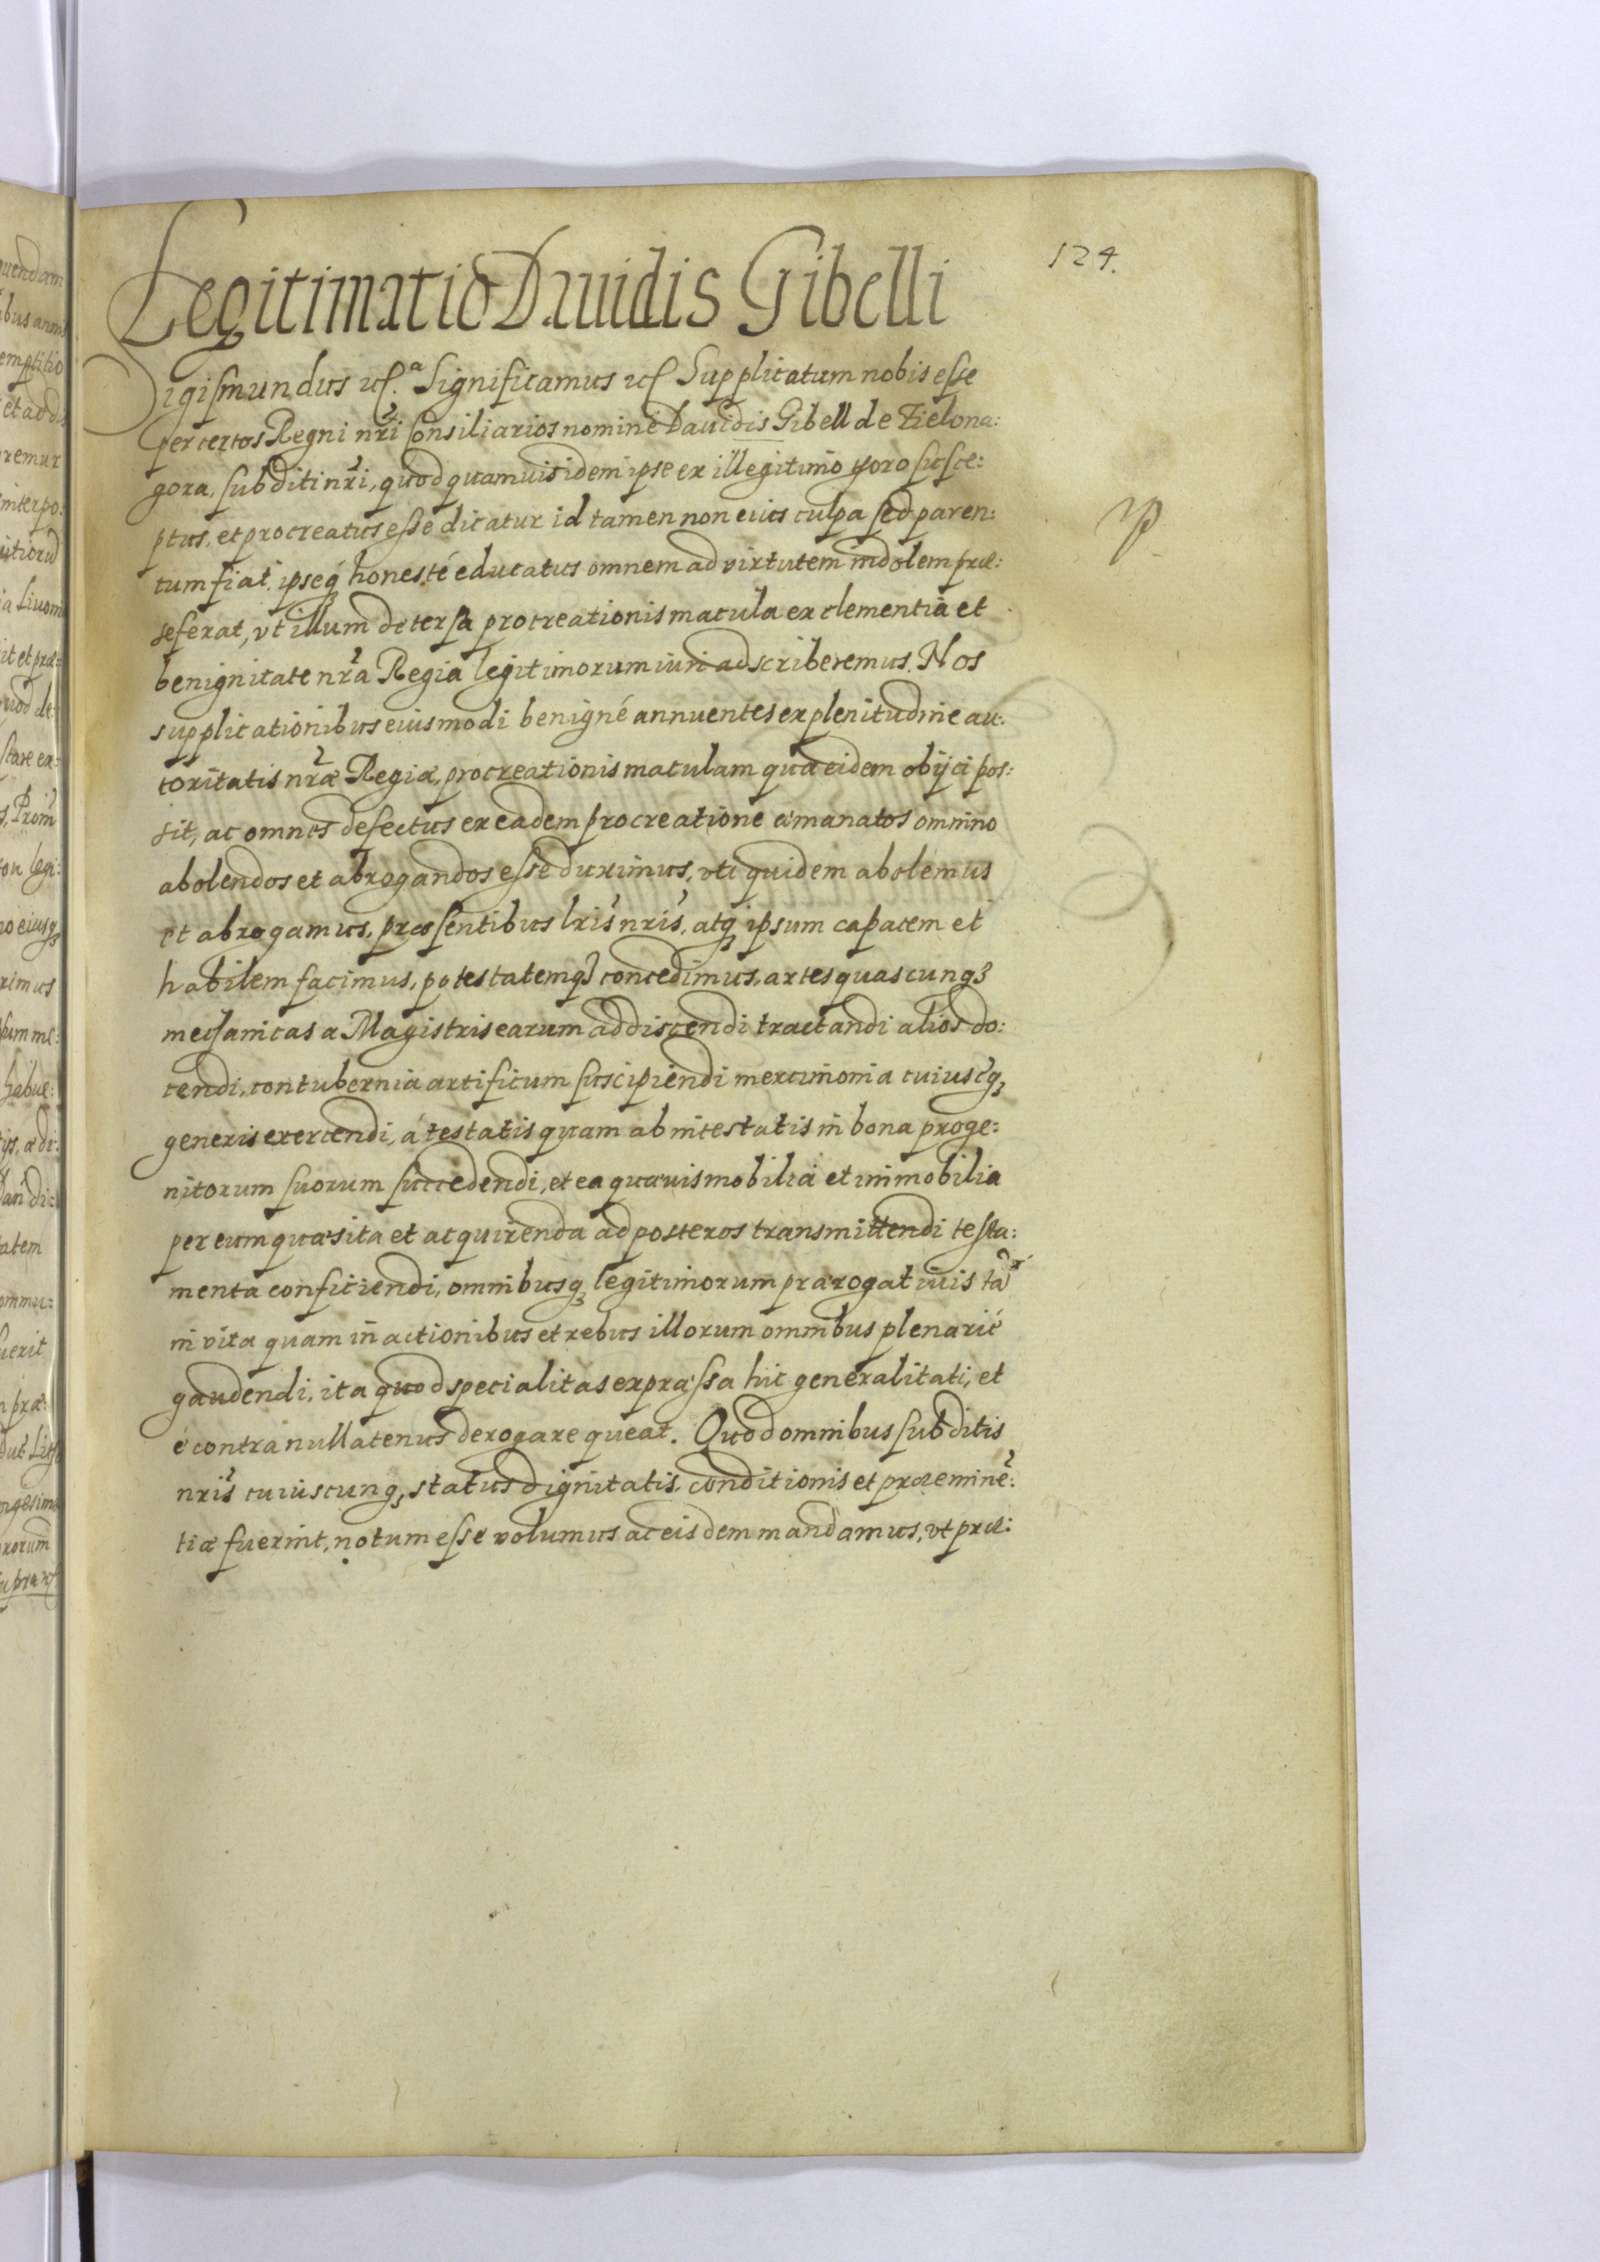 124.
Legitimatio Dauidis Gibelli
Sigismundus etc.ª Significamus etc Supplicatum nobis esse
per certos Regni nr̃i Consiliarios nomine Dauidis Gibell de Zielona:
gora, subditi nr̃i, quod quamuis idem ipse ex illegitimo thoro susce:
ptus, et procreatus esse dicatur id tamen non eius culpa sed paren:
tum fiat, ipseq́ꝫ honesté educatus omnem ad virtutem indolem præ:
seferat, vt illum detersa procreationis macula ex clementia et
benignitate nr̃a Regia legitimorum iuri adscriberemus. Nos
supplicationibus eiusmodi benigné annuentes ex plenitudine au:
toritatis nr̃æ Regiæ, procreationis maculam quæ eidem obijci pos:
sit, ac omnes defectus ex eadem procreatione emanatos omnino
abolendos et abrogandos esse duximus, vti quidem abolemus
et abrogamus, præsentibus lris̃ nris̃, atqꝫ ipsum capacem et
habilem facimus, potestatemqꝫ concedimus, artes quascunqꝫ
mechanicas a Magistris earum addiscendi tractandi alios do:
cendi, contubernia artificum suscipiendi mercimonia cuiuscqꝫ
generis exercendi, á testatis quam ab intestatis in bona proge:
nitorum suorum succedendi, et ea quæuis mobilia et immobilia
per eum quæsita et acquirenda ad posteros transmittendi testa:
menta conficiendi, omnibusqꝫ legitimorum prærogatiuis tã
in vita quam in actionibus et rebus illorum omnibus plenarié
gaudendi, ita quod specialitas expræssa hic generalitati, et
é contra nullatenus derogare queat. Quod omnibus subditis
nris̃ cuiuscunqꝫ status dignitatis, conditionis et præeminẽ:
tiæ fuerint, notum esse volumus ac eisdem mandamus, vt præ: